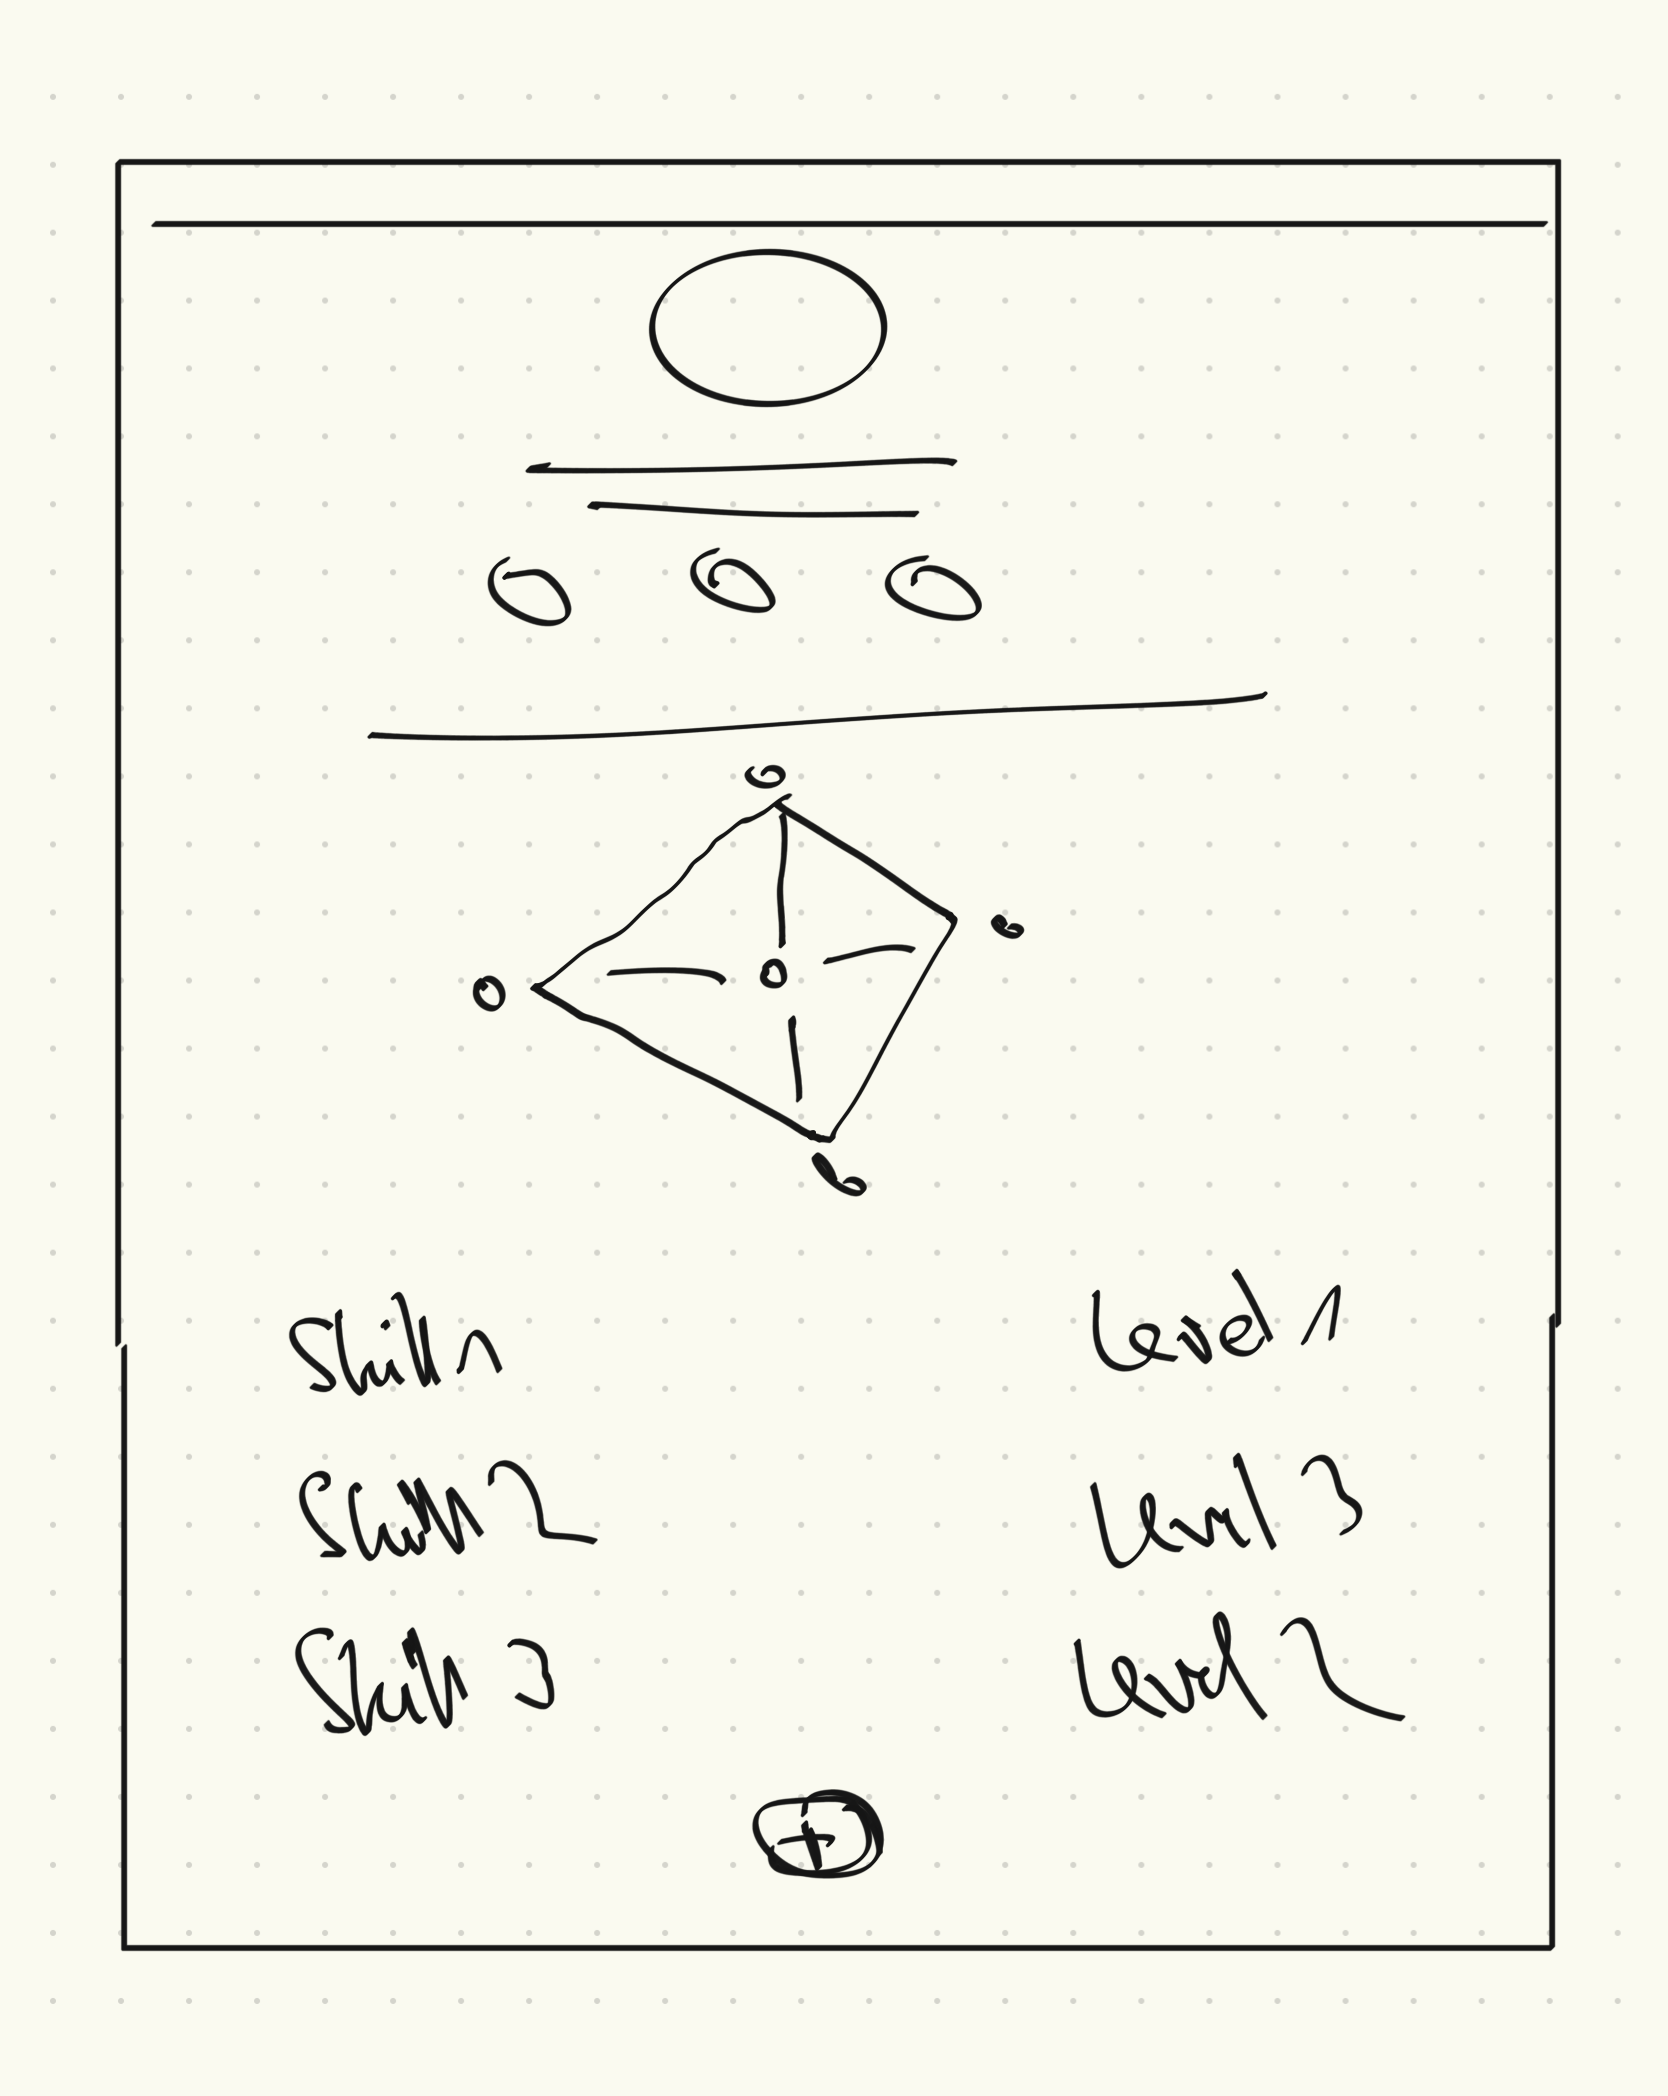 Skill 1
Level 1
Skill 2
Level 3
Skill 3
Level 2